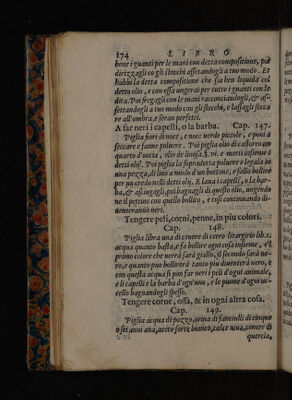 174 LIBRO
bene i guanti per le mani con detta compositione, poi
dirizzagli co gli stecchi assettandogli a tuo modo. Et
habbi la detta compositione che sia ben liquida col
detto olio, e con essa ungerai per tutto i guanti con le
dita. Poi fregagli con le mani racconciandogli, & as-
settandogli a tuo modo con gli stecchi, e lassagli secca
re all'ombra, e seran perfetti.
A far neri i capelli, o la barba. Cap. 147.
Piglia fiori di noce, e noce verde piccole, e poni a
seccare e fanne polvere. Poi piglia olio di castoreo un
quarto d'oncia, olio de linosa. vi. e metti insieme i
detti olij. Poi piglia la sopradetta polvere e legala in
una pezza, di lino a modo d'un bottone, e fallo bollire
per un credo nelli detti olij. E lava i capelli, o la bar-
ba, & asciugagli, poi bagnagli di quello olio, ungendo
ne il pettine con quello bollito, e così continuando di-
uenteranno neri.
Tengere peli, corni, penne, in piu colori.
Cap. 148.
Piglia libra una di cenere di cerro litargirio lib. s.
acqua quanto basta, e fa bollire ogni cosa insieme, e'l
primo colore che verrà sarà giallo, il secondo sarà ne-
ro, e quanto piu bollirete tanto piu diuenterà nero, e
con questa acqua si pon far neri i peli d'ogni animale,
e li capelli e la barba d'ogn'uno, e le piume d'ogni uc-
cello bagnandogli spesso.
Tengere corne, ossa, & in ogni altra cosa.
Cap. 149.
Piglia acqua di pozzo, orina di fanciulli di cinque
o sei anni ana, aceto forte bianco, calce viva, cenere di
quercia,